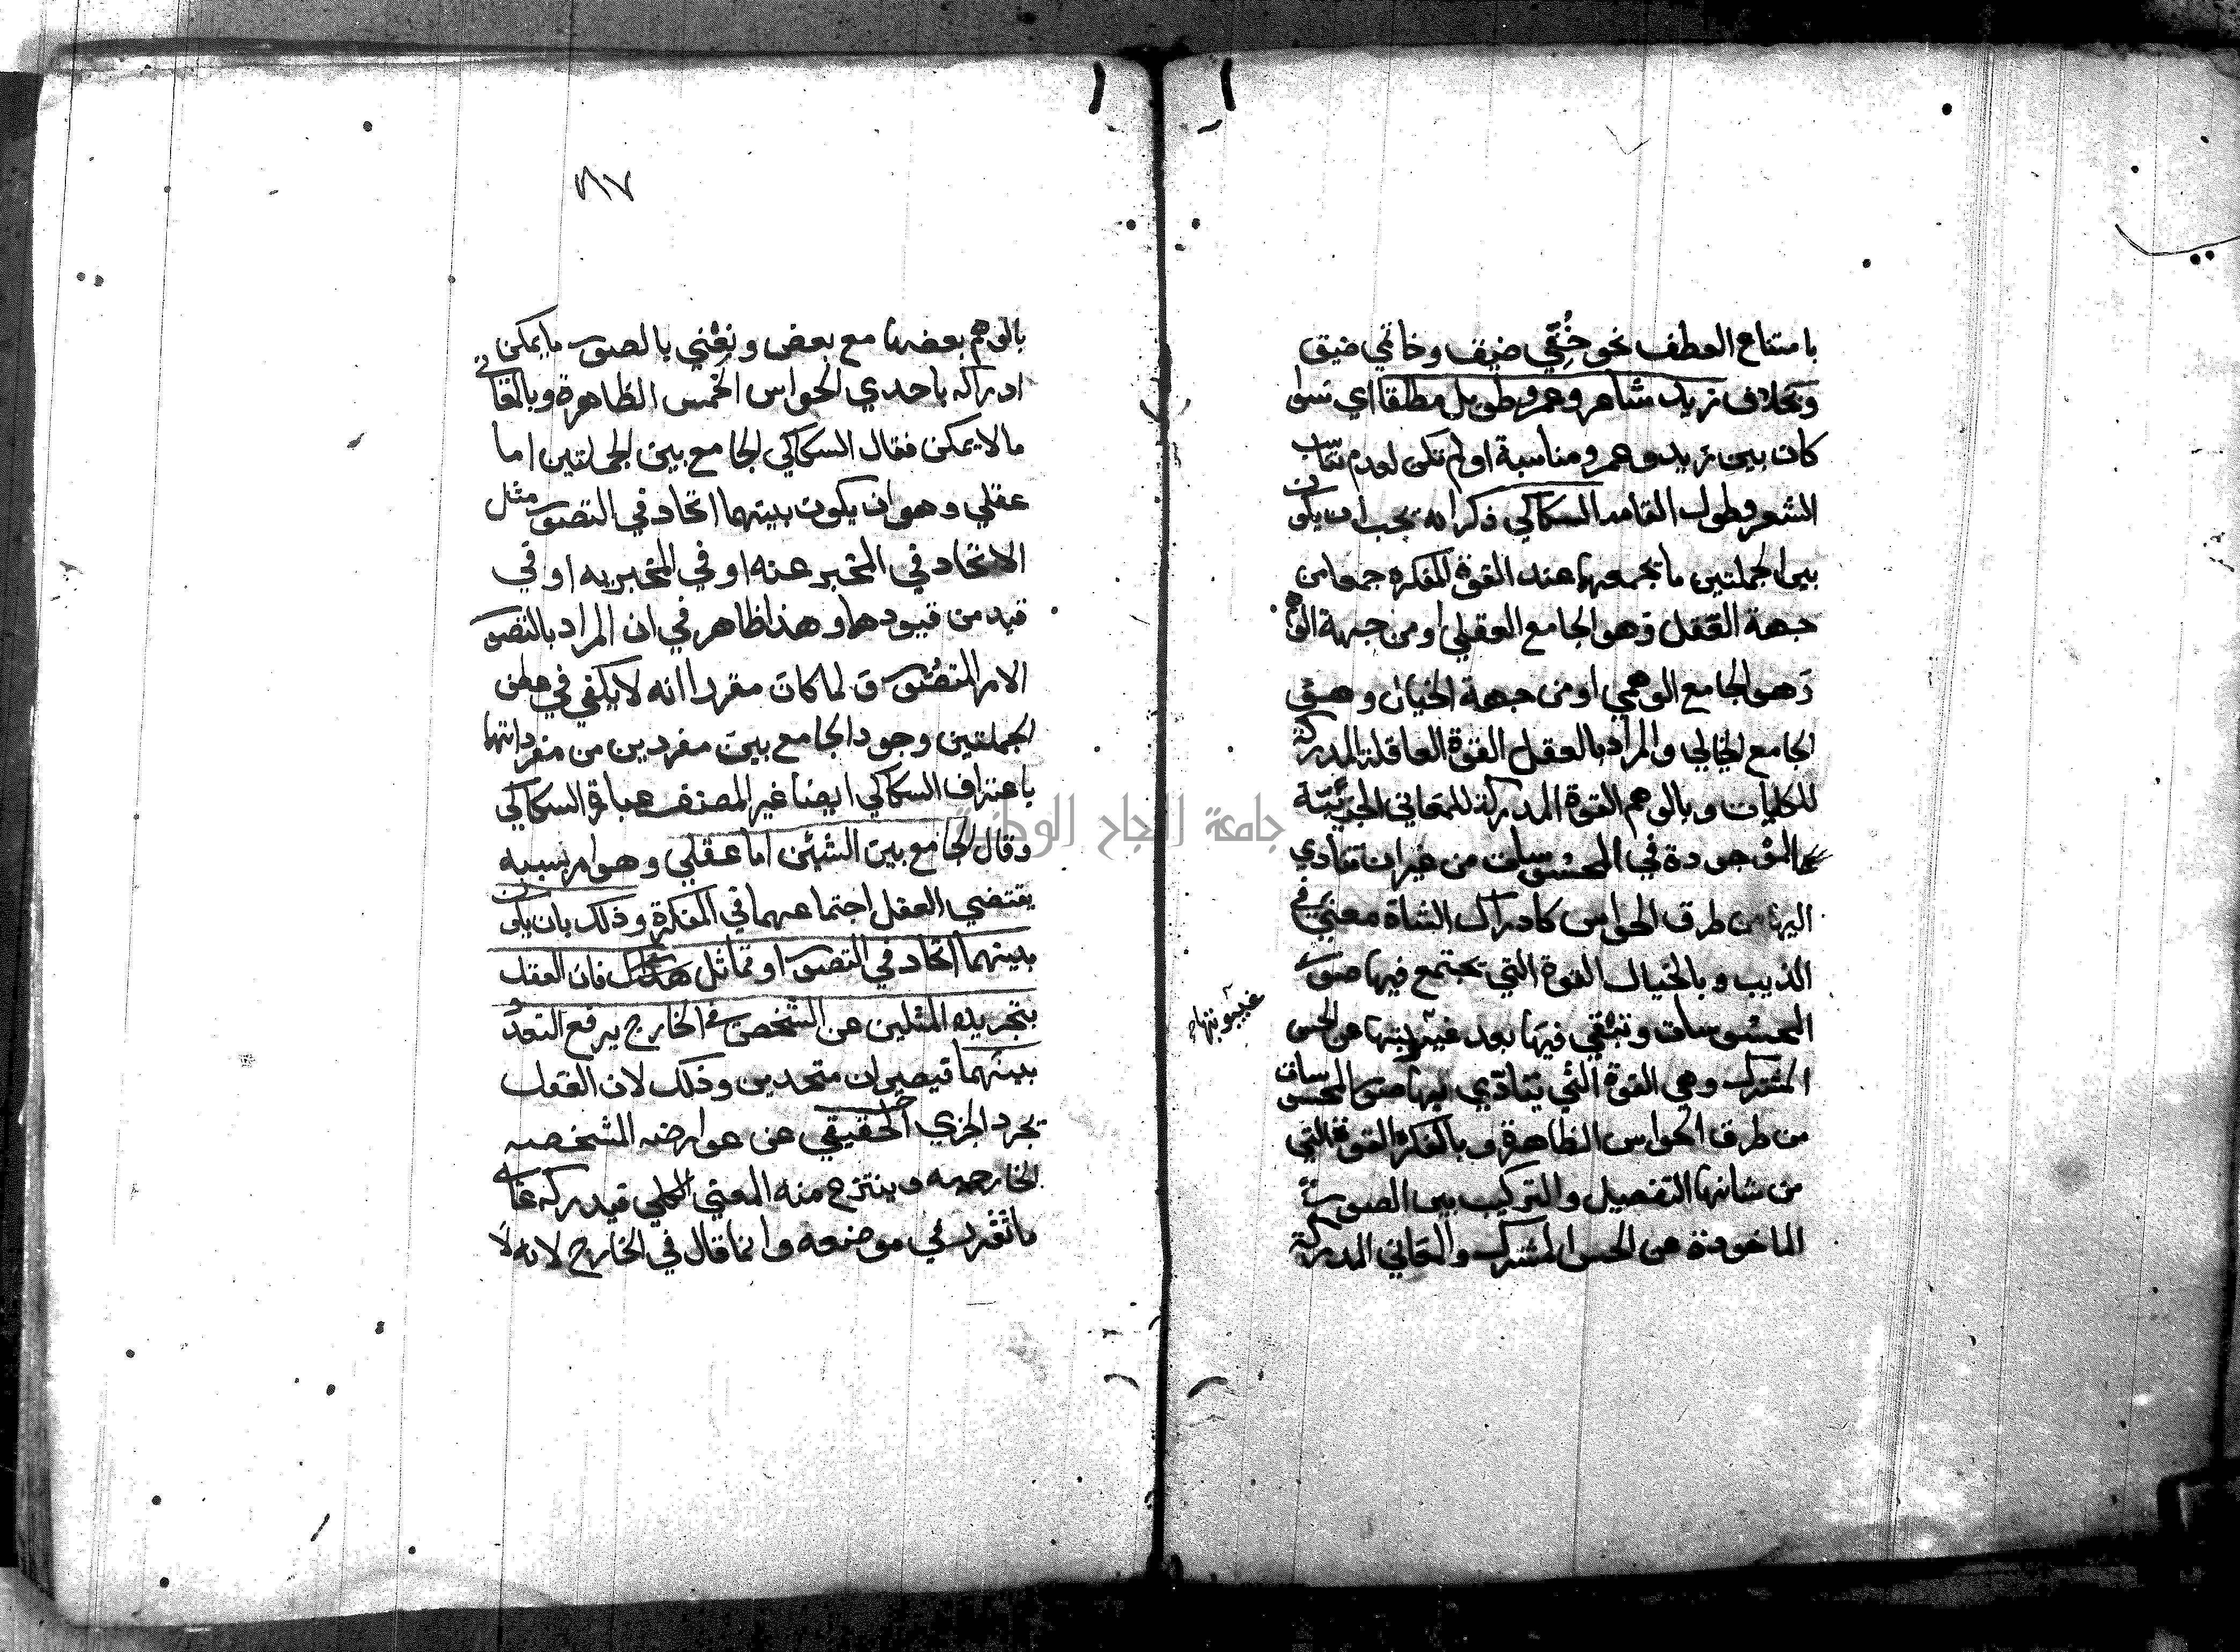 بامتناع العطف نحو خُفّي ضيق وخاتمي ضيق
وبخلاف زيد شاعر وعمرو طويل مطلقا اي سوا
كان بين زيد وعمرو مناسبة او لم تكن لعدم تناسب
الشعر وطول القامه السكاكي ذكر انه يجب ان يكون
بين الجملتين ما يجمعهما عند القوة المفكره جمعا من
جهة العقل وهو الجامع العقلي او من جهة الوهم
وهو الجامع الوهمي او من جهة الخيال وهو
الجامع الخيالي والمراد بالعقل القوة العاقلة المدركة
للكليات وبالوهم القوة المدركة للمعاني الجزئية
الموجودة في المحسوسات من غير ان تتادي
اليها من طرق الحواس كادراك الشاة معني في
الذيب وبالخيال القوة التي تجتمع فيها صور
المحسوسات وتبقي فيها بعد غيبتها عن الحس
غيبوبتها
المشترك وهي القوة التي تتادي اليها صور المحسوسات
من طرق الحواس الظاهرة وبالمفكرة القوة التي
من شانها التفصيل والتركيب بين الصور
الماخوذة عن الحس المشترك والمعاني المدركة
٢١٧
بالوهم بعضها مع بعض ونعني بالصور ما يمكن
ادراكه باحدي الحواس الخمس الظاهرة وبالمعاني
ما لا يمكن فقال السكاكي الجامع بين الجملتين اما
عقلي وهو ان يكون بينهما اتحاد في التصور مثل
الاتحاد في المخبر عنه او في المخبر به او في
قيد من قيودها وهذا ظاهر في ان المراد بالتصور
الامر المتصور ولما كان مقررا انه لا يكفي في عطف
الجملتين وجود الجامع بين مفردين من مفرداتها
باعتراف السكاكي ايضا غير المصنف عبارة السكاكي
وقال الجامع بين الشيئين اما عقلي وهو امر بسببه
يقتضي العقل اجتماعهما في المفكرة وذلك بان يكون
بينهما اتحاد في التصور او تماثل هناك فان العقل
بتجريده المثلين عن التشخص في الخارج يرفع التعدد
بينهما فيصيران متحدين وذلك لان العقل
يجرد الجزي الحقيقي عن عوارضه المشخصه
الخارجيه وينتزع منه المعني الكلي فيدركه علي
ما تقرر في موضعه وانما قال في الخارج لانه لا
جامعة النجاح الوطنية